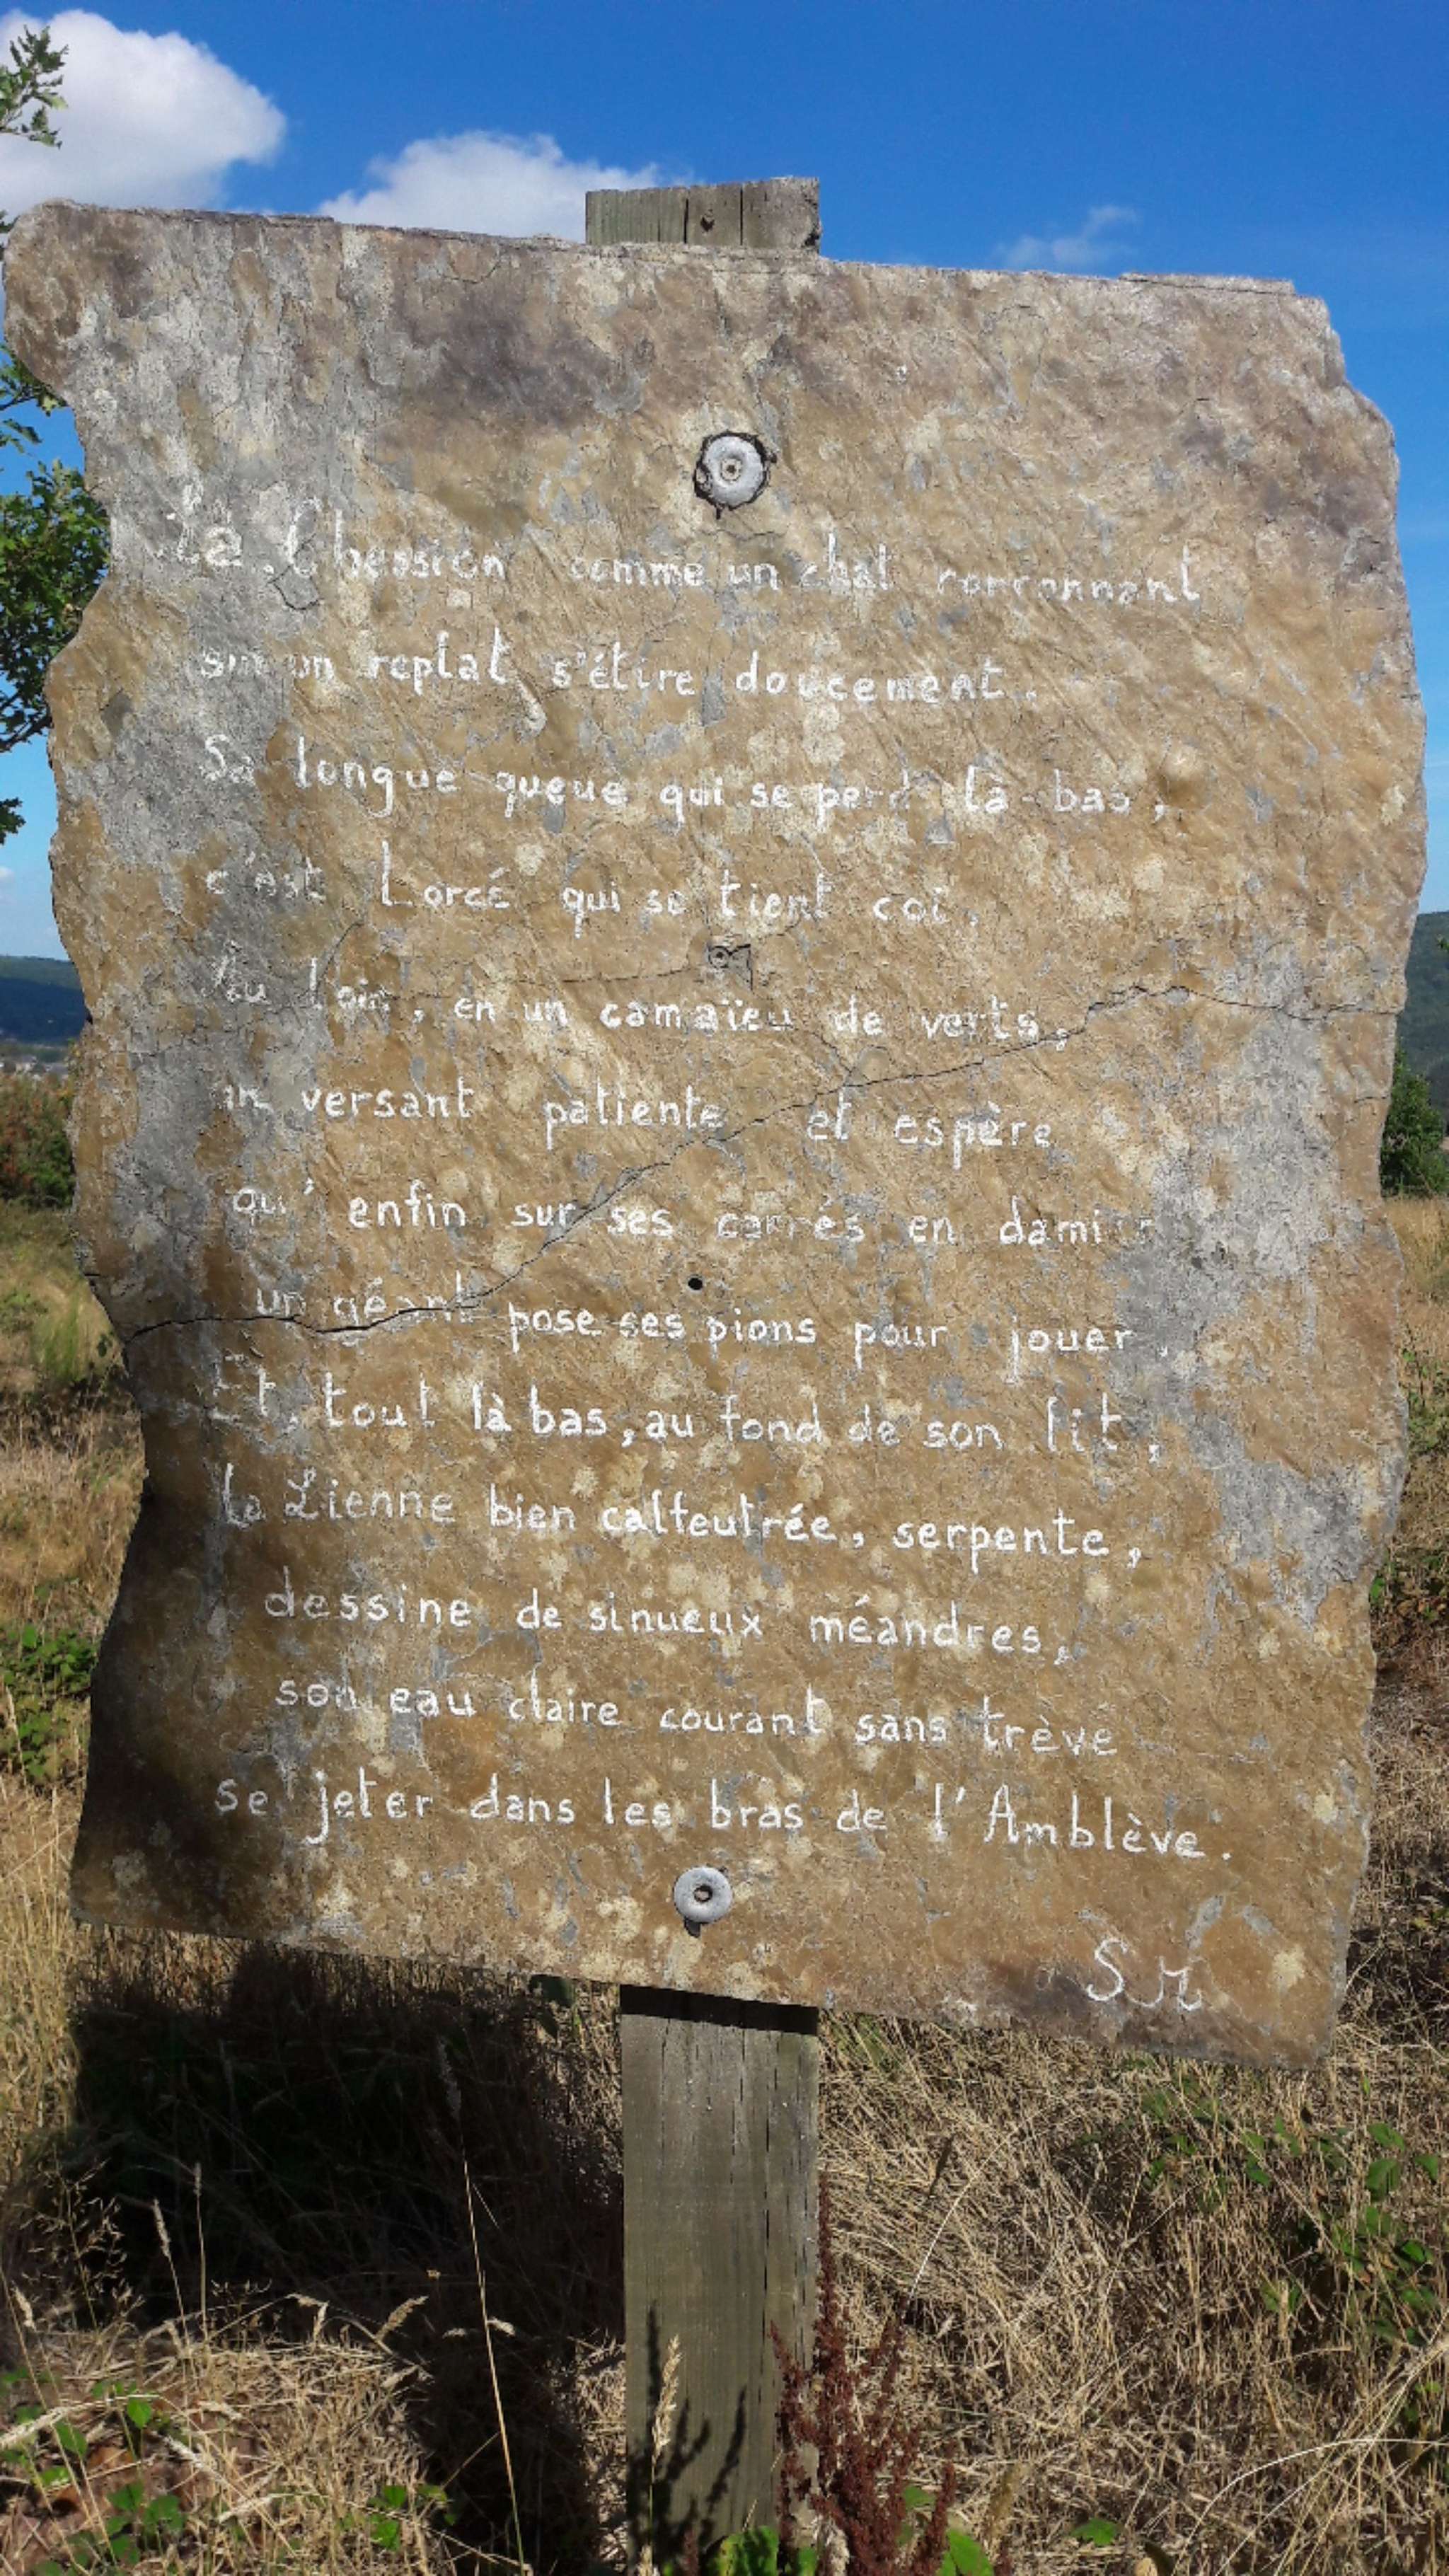 La Chession comme un chat ronronnant
sur un replat, s'étire doucement.
Sa longue queue qui se perd là-bas,
c'est Lorcé qui se tient coi.
Au loin, en un camaïeu de verts,
un versant patiente et espère
qu'enfin sur ses carrés en damier
un géant pose ses pions pour jouer.
Et, tout là bas, au fond de son lit,
la Lienne bien calfeutrée, serpente,
dessine de sinueux méandres,
son eau claire courant sans trève
se jeter dans les bras de l'Amblève.